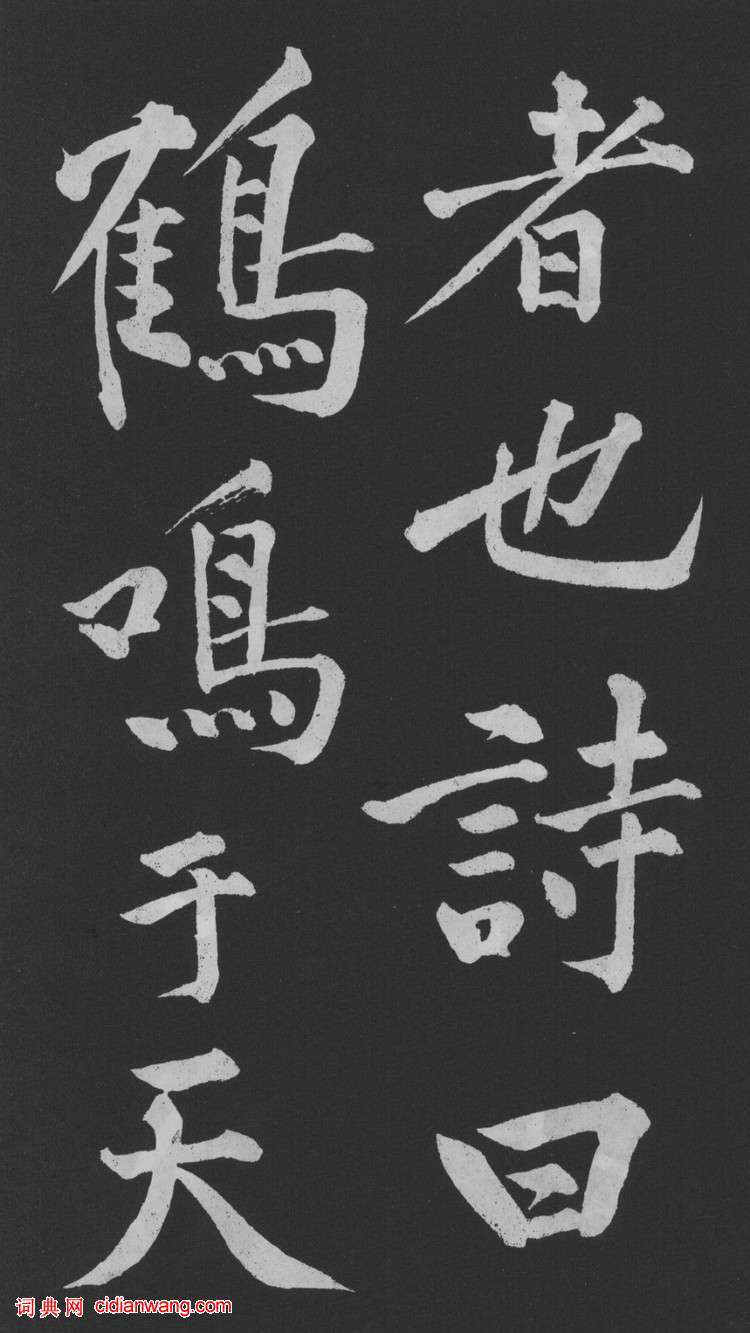 者也詩曰
鶴鳴于天
词典网 cidianwang.com